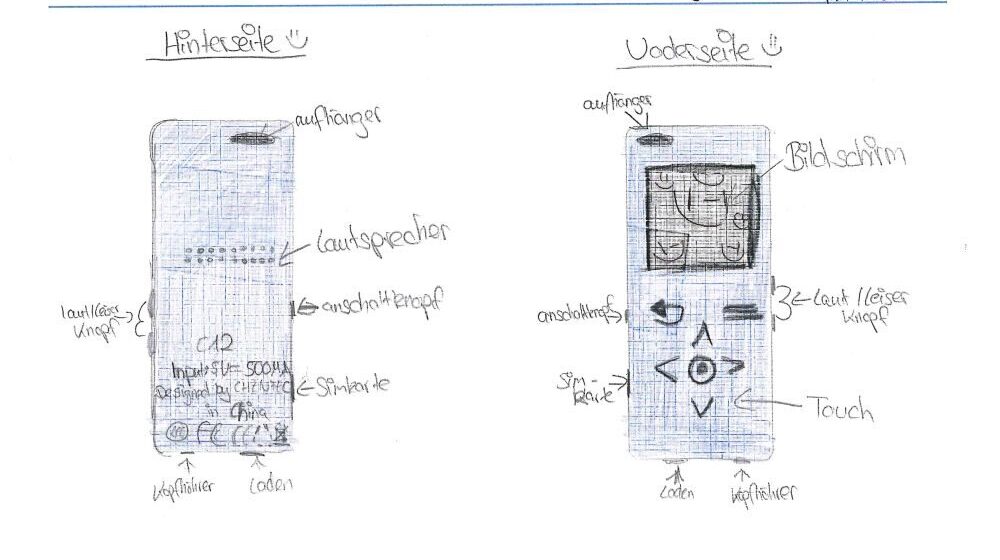 Hinterseite
Voderseite
aufhänger
aufhänger
Bildschirm
Lautsprecher
laut/leiser
Knopf
anschaltknopf
anschaltknopf
Laut/leiser
Knopf
C12
Input:5V= 500MA
Designed by
in China
Simkarte
Sim-
karte
Touch
Kopfhöhrer
Laden
Laden
Kopfhöhrer